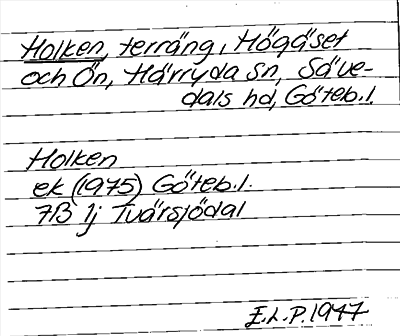 Holken, terräng, Högåset
och Ön, Härryda sn, Säve-
dals hd, Göteb.l.
Holken
ek (1975) Göteb.l.
7B 1j Tvärsjödal
E.L.P. 1947